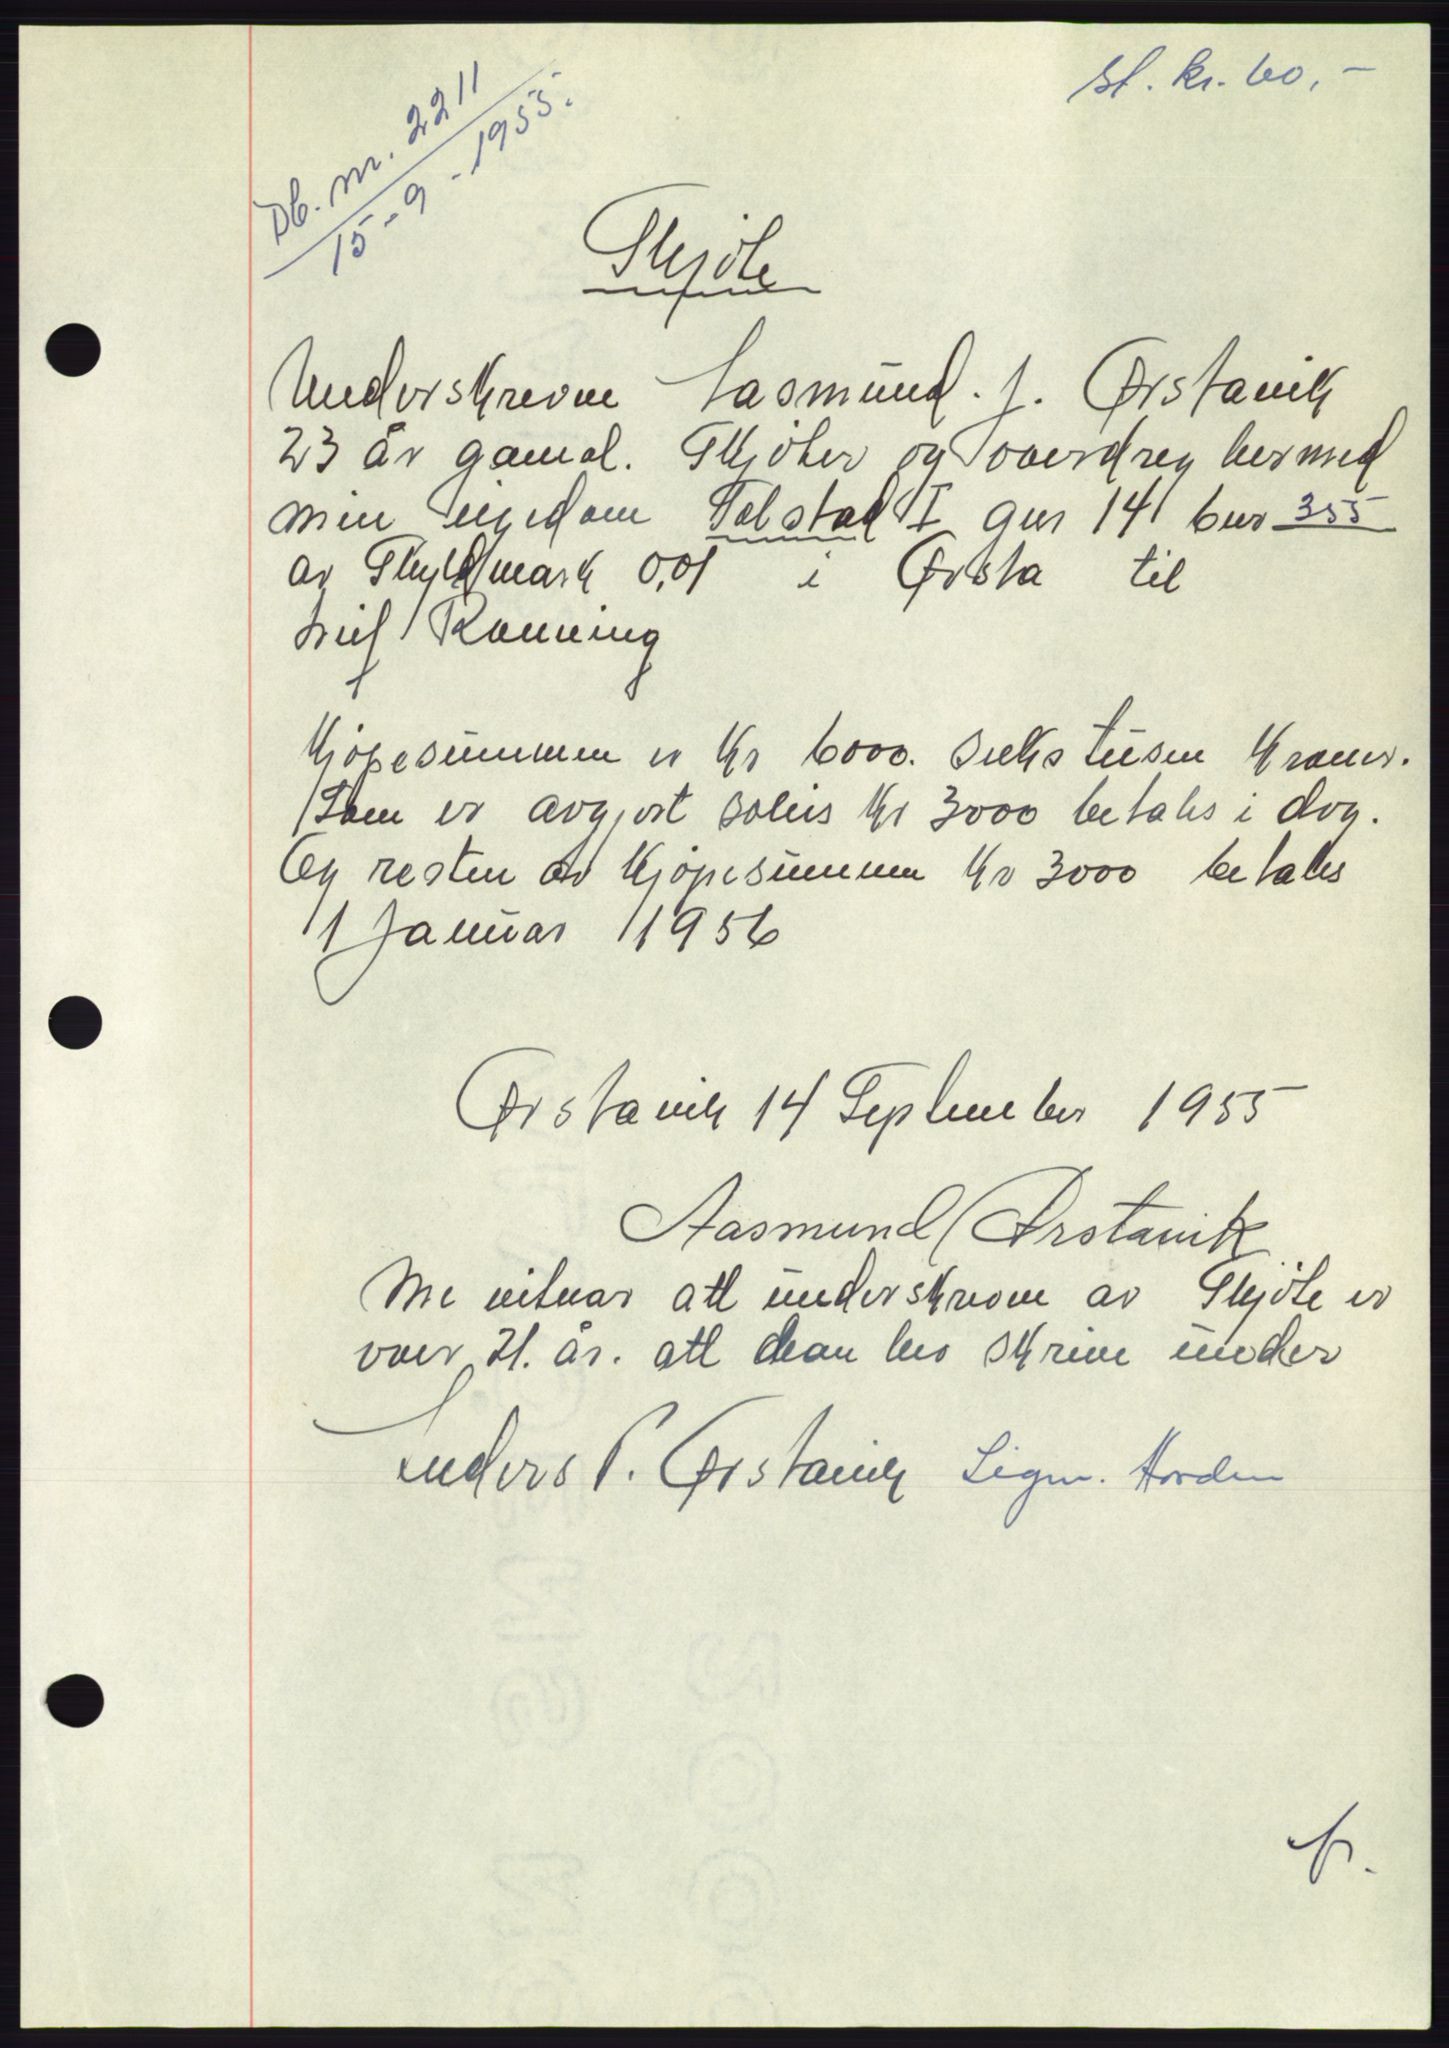 st. kr. 60,-
Db. nr. 2211
15-9-1955.
Skjöte
Underskrevne Aasmund. J. Ørstavik
23 år gamal. Skjöter og overdreg hermed
min eigedom Solstad I gnr 14 bnr 355
av Skyldmark 0,01 i Ørsta til
Leif Rönning
Kjöpesummen er Kr 6000. seks tusen Kroner.
Som er avgjort soleis Kr 3000 betales i dog.
Og resten av Kjöpesummen Kr 3000 betales
1 Januar 1956
Ørstavik 14 September 1955
Aasmund Ørstavik
Me vitnar att underskrevne av Skjöte er
over 21. år. att han her skrive under
Anders P. Ørstavik Sigm. Hovden